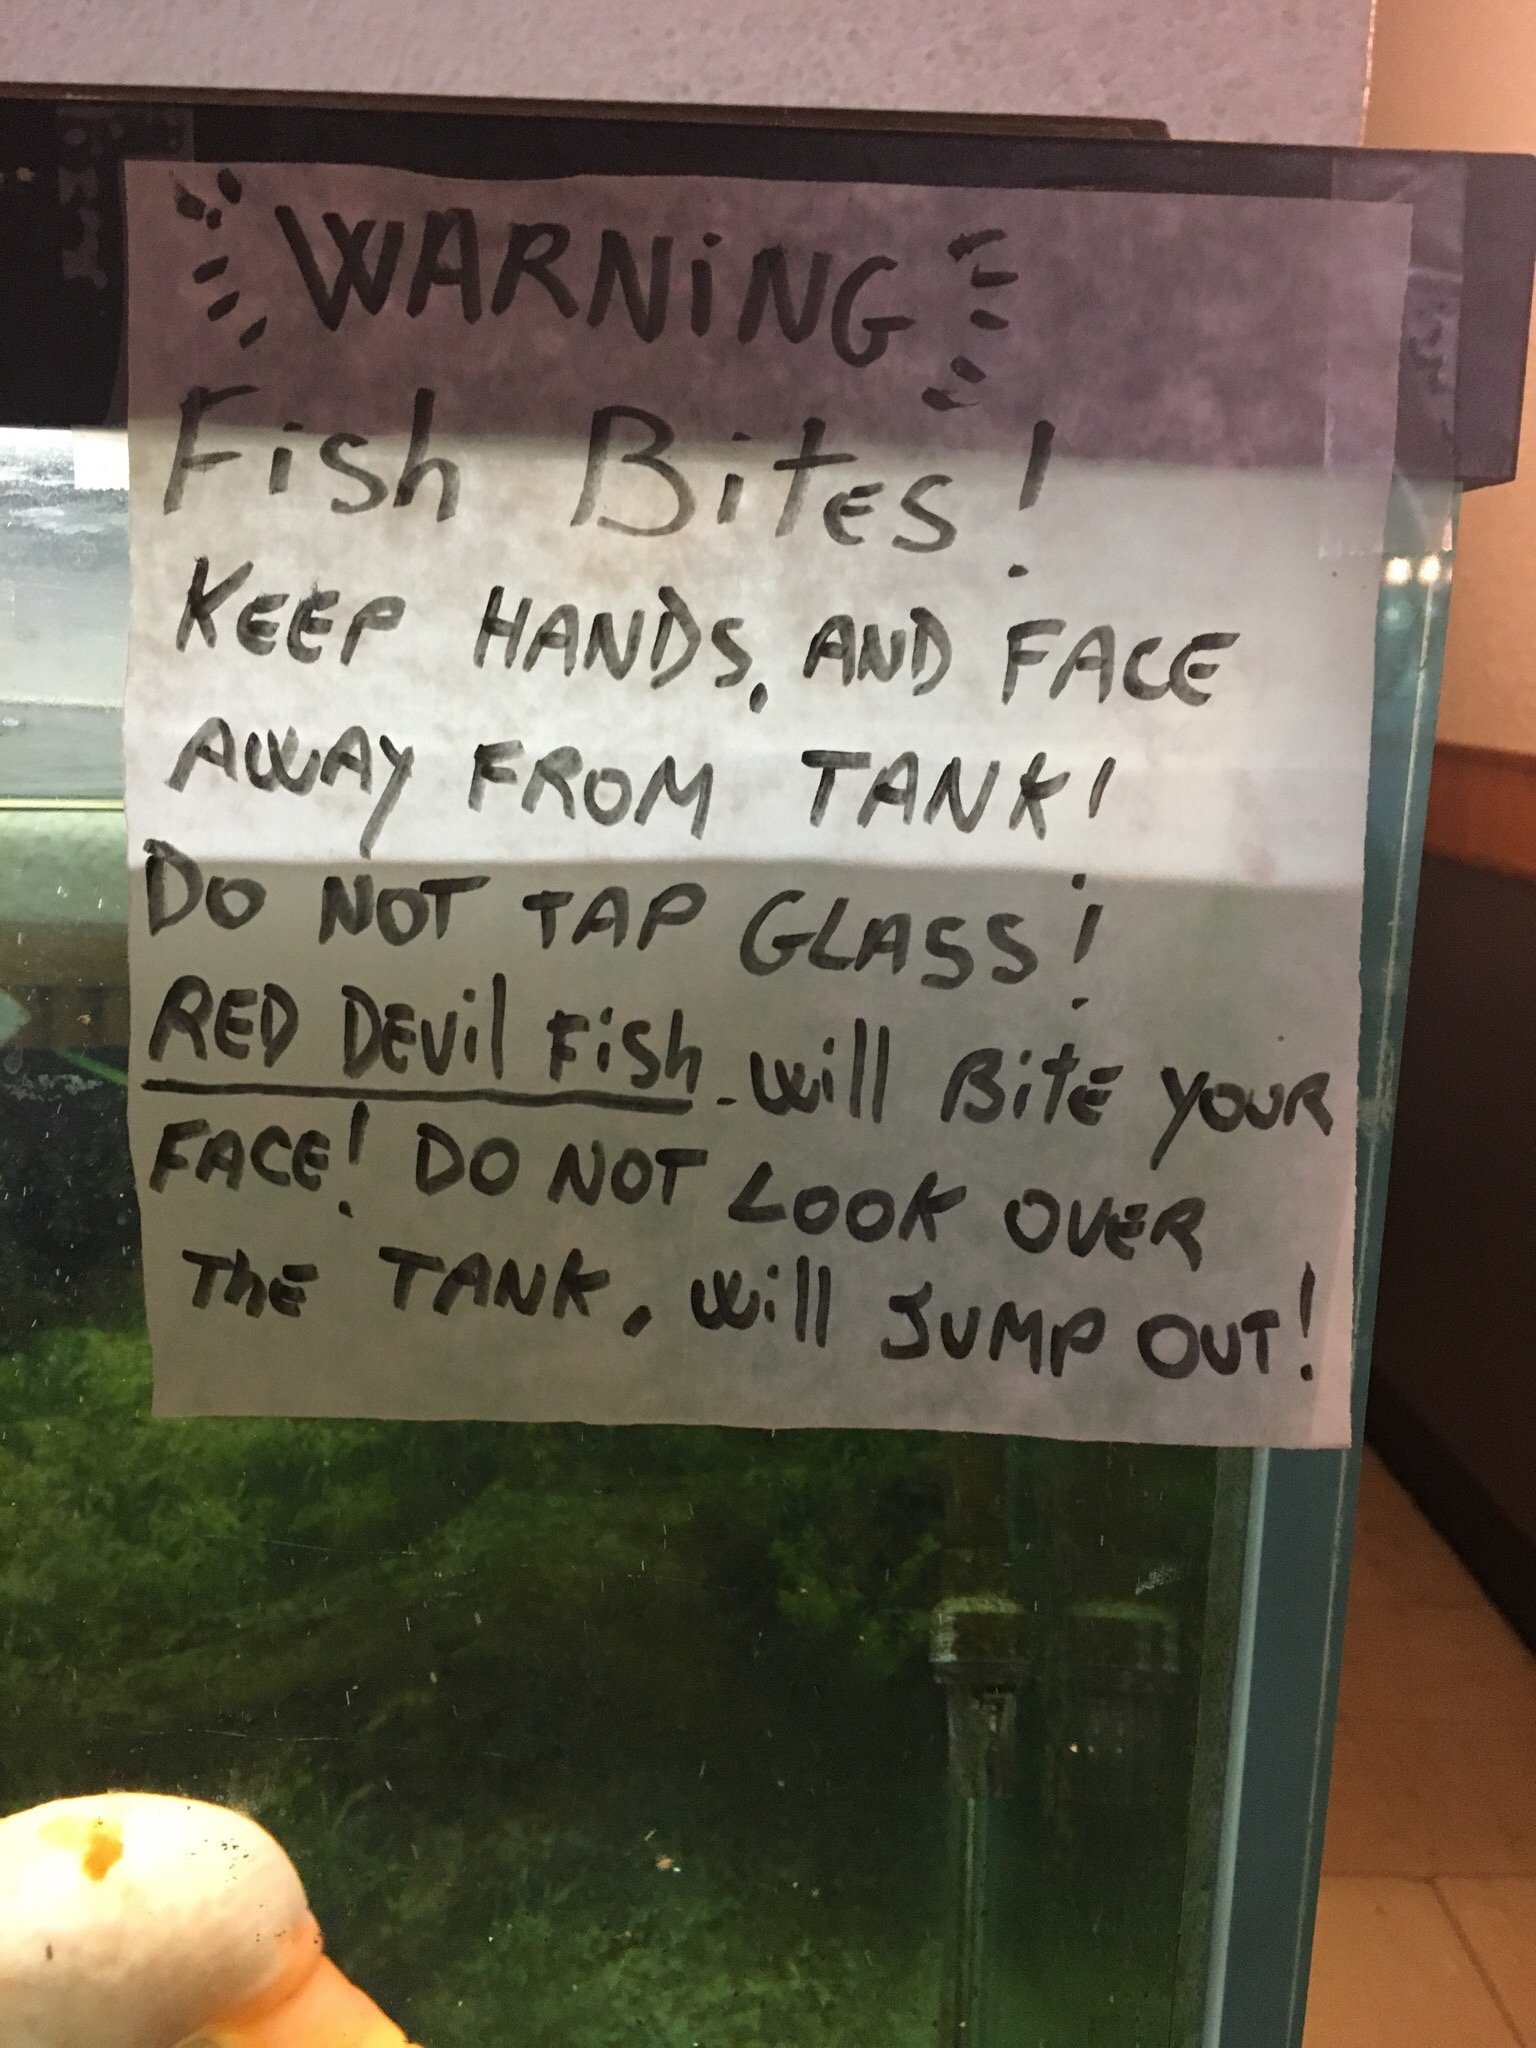 WARNiNG
Fish Bites!
KEEP HANDS, AND FACE
AWAY FROM TANK!
DO NOT TAP GLASS!
RED DEViL FiSh - will BiTE YOUR
FACE! DO NOT LOOK OVER
ThE TANK, will JUMP OUT!